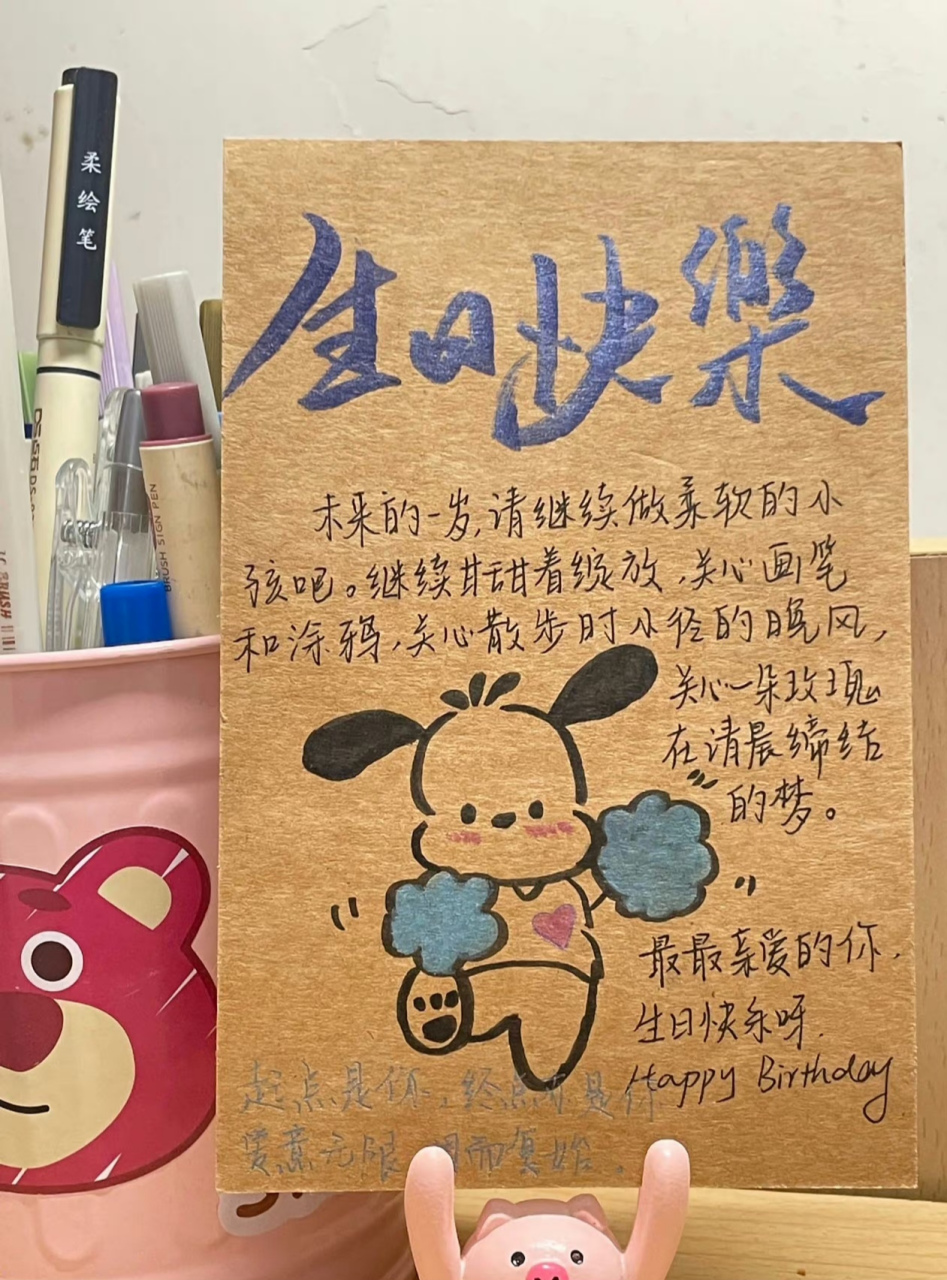 柔绘笔
生日快樂
未来的一岁,请继续做柔软的小
孩吧。继续甘甜着绽放,关心画笔
和涂鸦,关心散步时小径的晚风,
关心一朵玫瑰
在清晨缔结
的梦。
最最亲爱的你,
生日快乐呀.
Happy Birthday
起点是你,终点也是你
爱意无限 周而复始.
BRUSH SIGN PEN